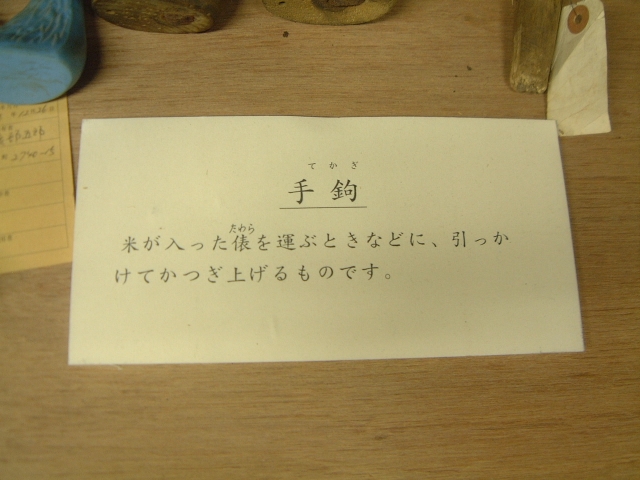 てかぎ
手鉤
たわら
米が入った俵を運ぶときなどに、引っか
けてかつぎ上げるものです。